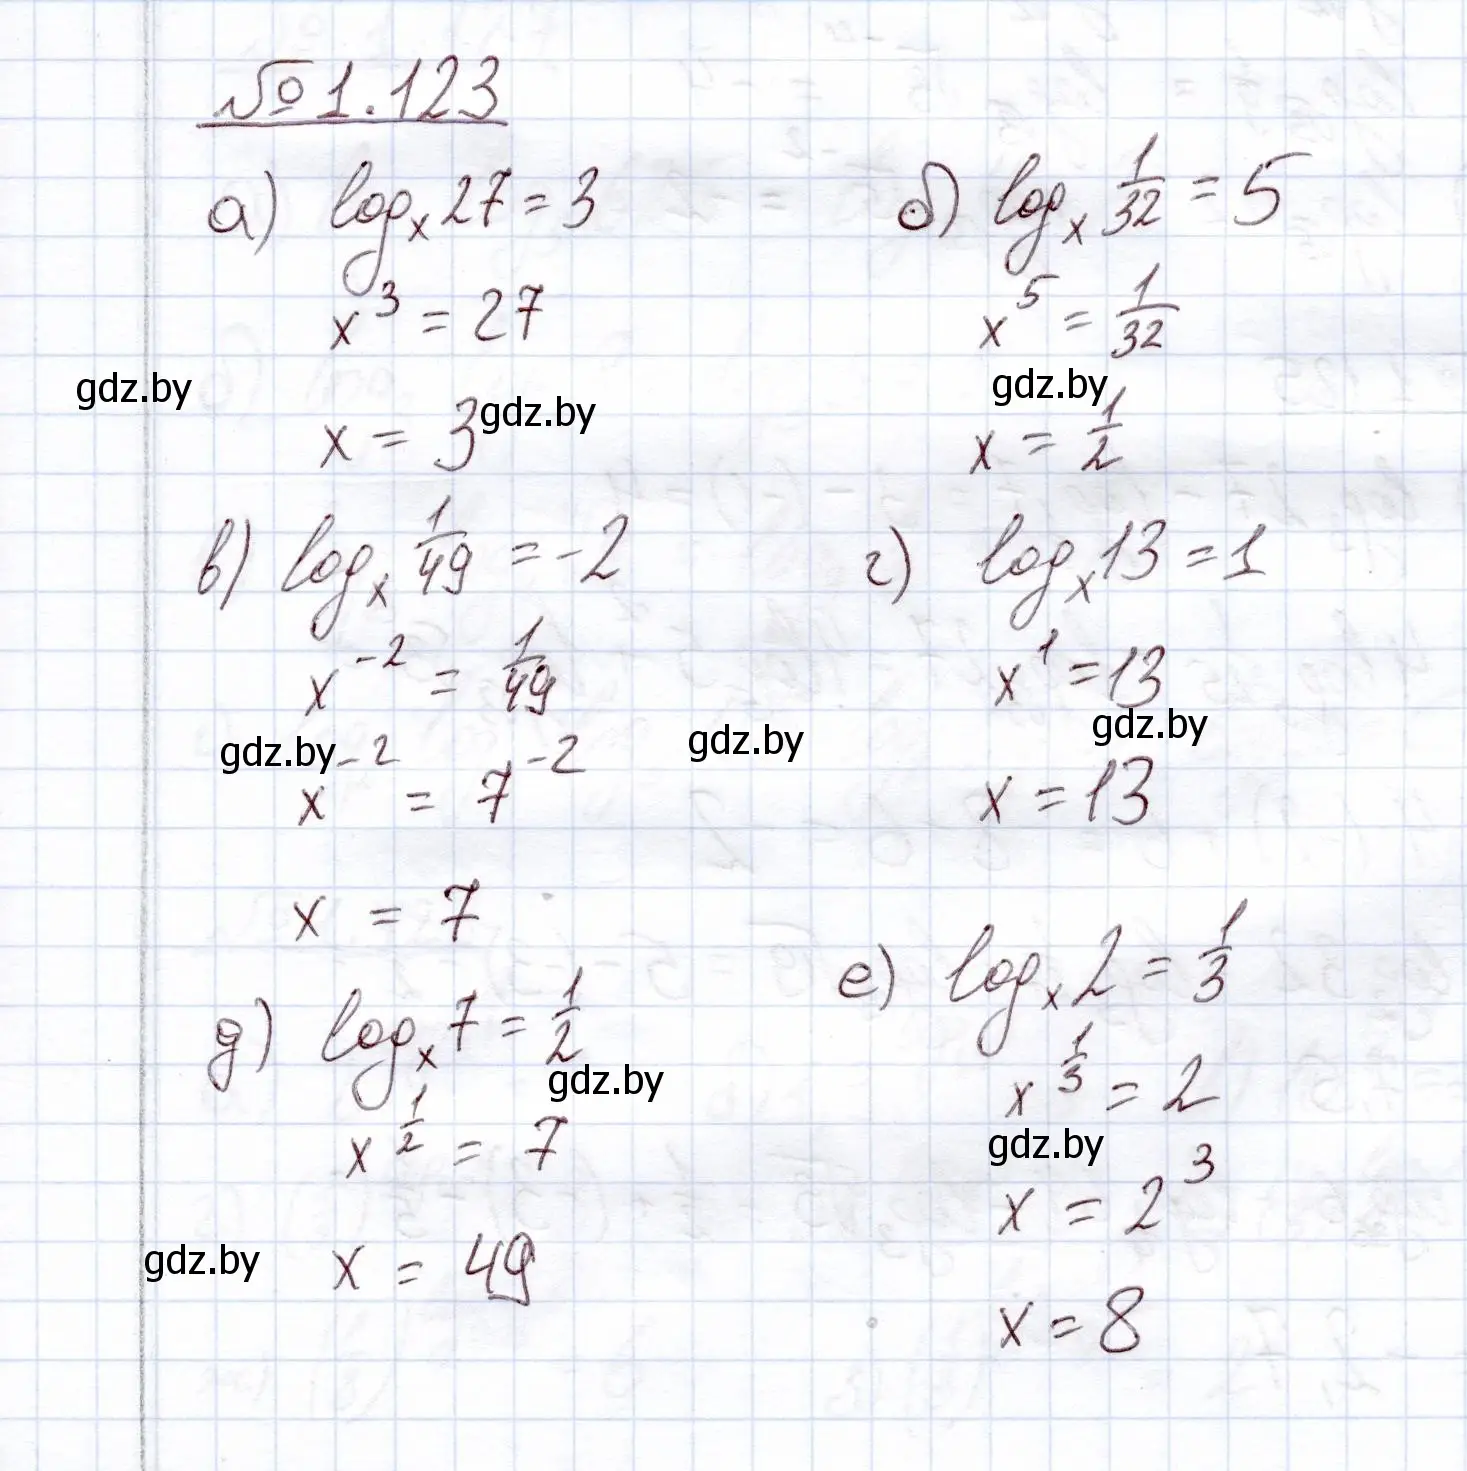 №1.123
а) log_x 27 = 3
x^3 = 27
gdz.by
x = 3
gdz.by
б) log_x 1/32 = 5
x^5 = 1/32
gdz.by
x = 1/2
в) log_x 1/49 = -2
x^-2 = 1/49
gdz.by
x^-2 = 7^-2
gdz.by
x = 7
г) log_x 13 = 1
x^1 = 13
gdz.by
x = 13
д) log_x 7 = 1/2
gdz.by
x^1/2 = 7
gdz.by
x = 49
е) log_x 2 = 1/3
x^1/3 = 2
gdz.by
x = 2^3
x = 8